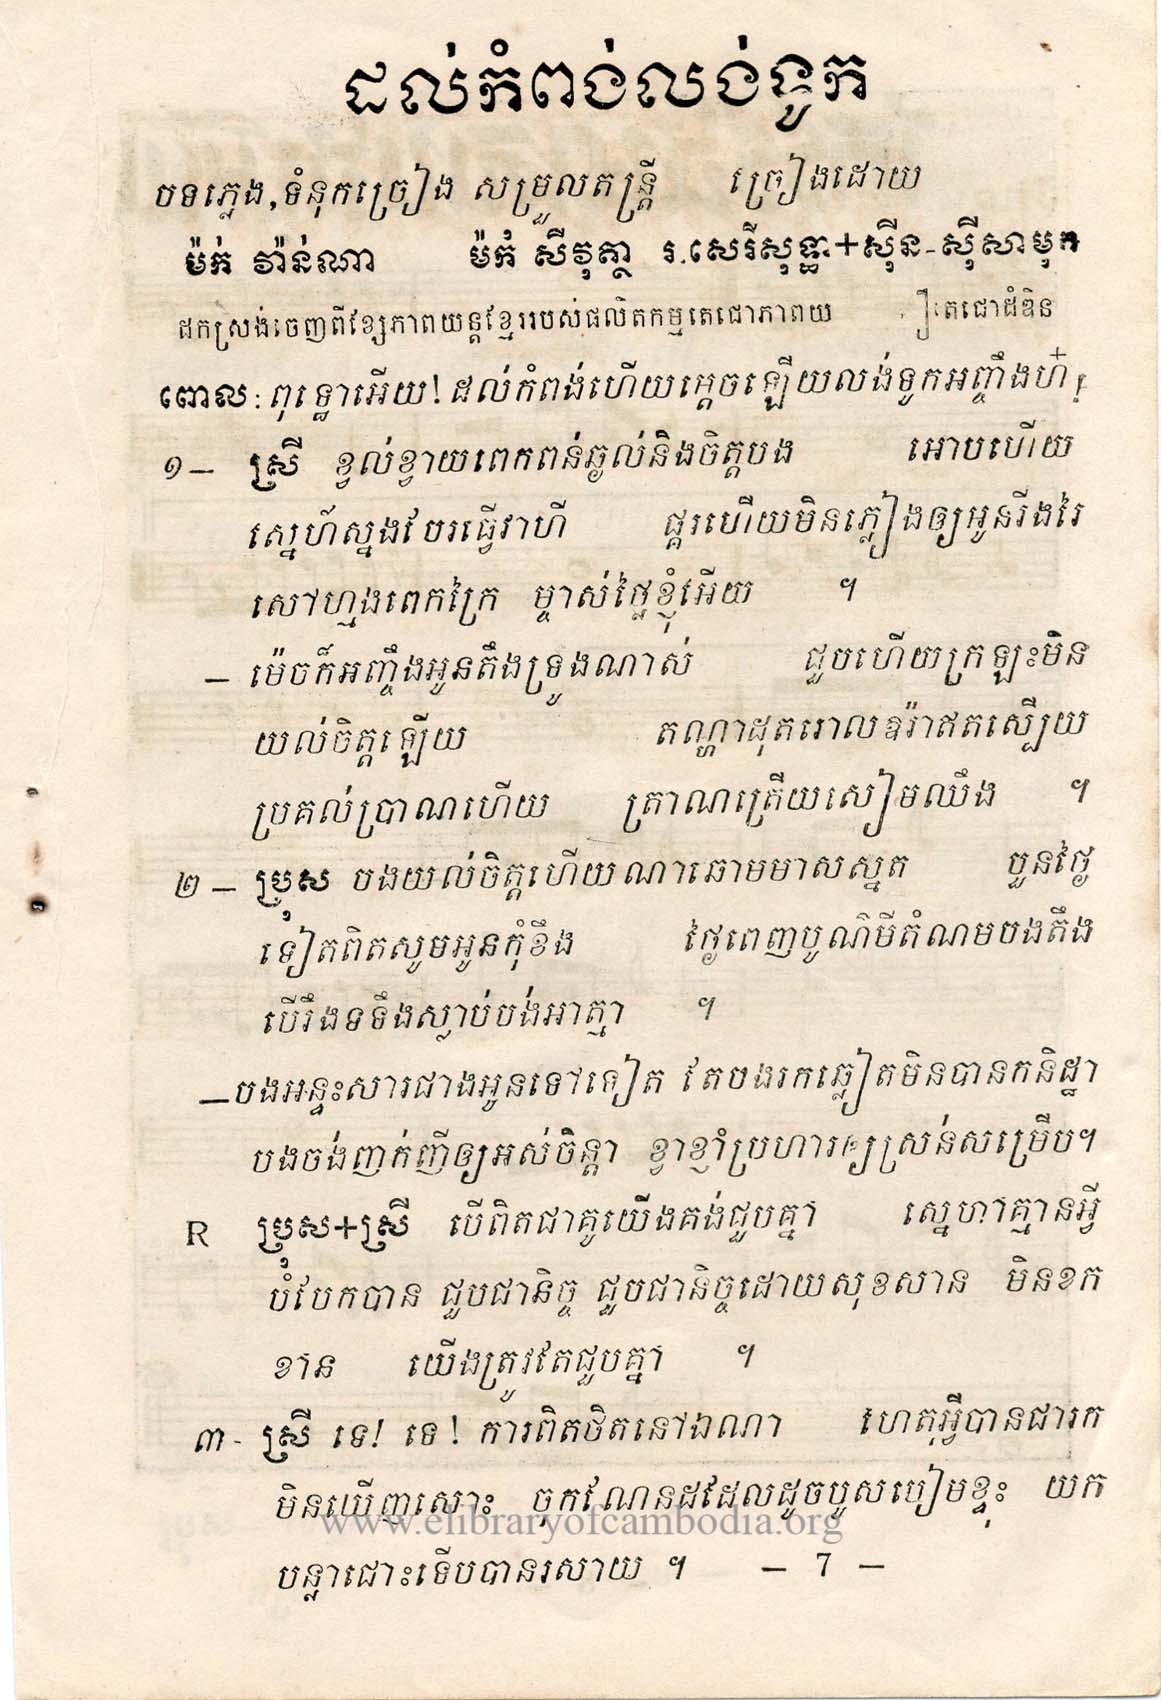 ដល់កំពង់លង់ទូក
បទភ្លេង,ទំនុកច្រៀង សម្រួលតន្ត្រី ច្រៀងដោយ
ម៉ក់ វ៉ាន់ណា ម៉ក់ សីវុត្ថា រ.សេរីសុទ្ធា+ស៊ីន-ស៊ីសាមុត
ដកស្រង់ចេញពីខ្សែភាពយន្តខ្មែររបស់ផលិតកម្មតេជោភាពយ រឿងតេជោដំឌិន
ពោល: ពុទ្ធោអើយ! ដល់កំពង់ហើយម្ដេចឡើយលង់ទូកអញ្ចឹងហ៎!
១- ស្រី ខ្វល់ខ្វាយពេកពន់ឆ្ងល់នឹងចិត្តបង អោបហើយ
ស្នេហ៍ស្នងបែរធ្វើវាហី ផ្គរហើយមិនភ្លៀងឲ្យអូនរីងរៃ
សៅហ្មងពេកក្រៃ ម្ចាស់ថ្លៃខ្ញុំអើយ ។
- ម៉េចក៏អញ្ចឹងអូនតឹងទ្រូងណាស់ ជួបហើយក្រឡះមិន
យល់ចិត្តឡើយ តណ្ហាដុតរោលឧរ៉ាឥតស្បើយ
ប្រគល់ប្រាណហើយ ត្រាណត្រើយសៀមឈឹង ។
២- ប្រុស បងយល់ចិត្តហើយណាឆោមមាសស្នត បួនថ្ងៃ
ទៀតពិតសូមអូនកុំខឹង ថ្ងៃពេញបូណ៌មីតំណមបងតឹង
បើរឹងទទឹងស្លាប់បង់អាត្មា ។
-បងអន្ទះសារជាងអូនទៅទៀត តែបងរកឆ្លៀតមិនបានកនិដ្ឋា
បងចង់ញក់ញីឲ្យអស់ចិន្តា ខ្វាខ្ញាំប្រហារឲ្យស្រន់សម្រើប។
R ប្រុស+ស្រី បើពិតជាគូយើងគង់ជួបគ្នា ស្នេហាគ្មានអ្វី
បំបែកបាន ជួបជានិច្ច ជួបជានិច្ចដោយសុខសាន មិនខក
ខាន យើងត្រូវតែជួបគ្នា ។
៣- ស្រី ទេ! ទេ! ការពិតថិតនៅឯណា ហេតុអ្វីបានជារក
មិនឃើញសោះ ចុកណែនដដែលដូចបូសបៀមខ្ទុះ យក
បន្លាជោះទើបបានរសាយ ។ - 7 -
www.elibraryofcambodia.org